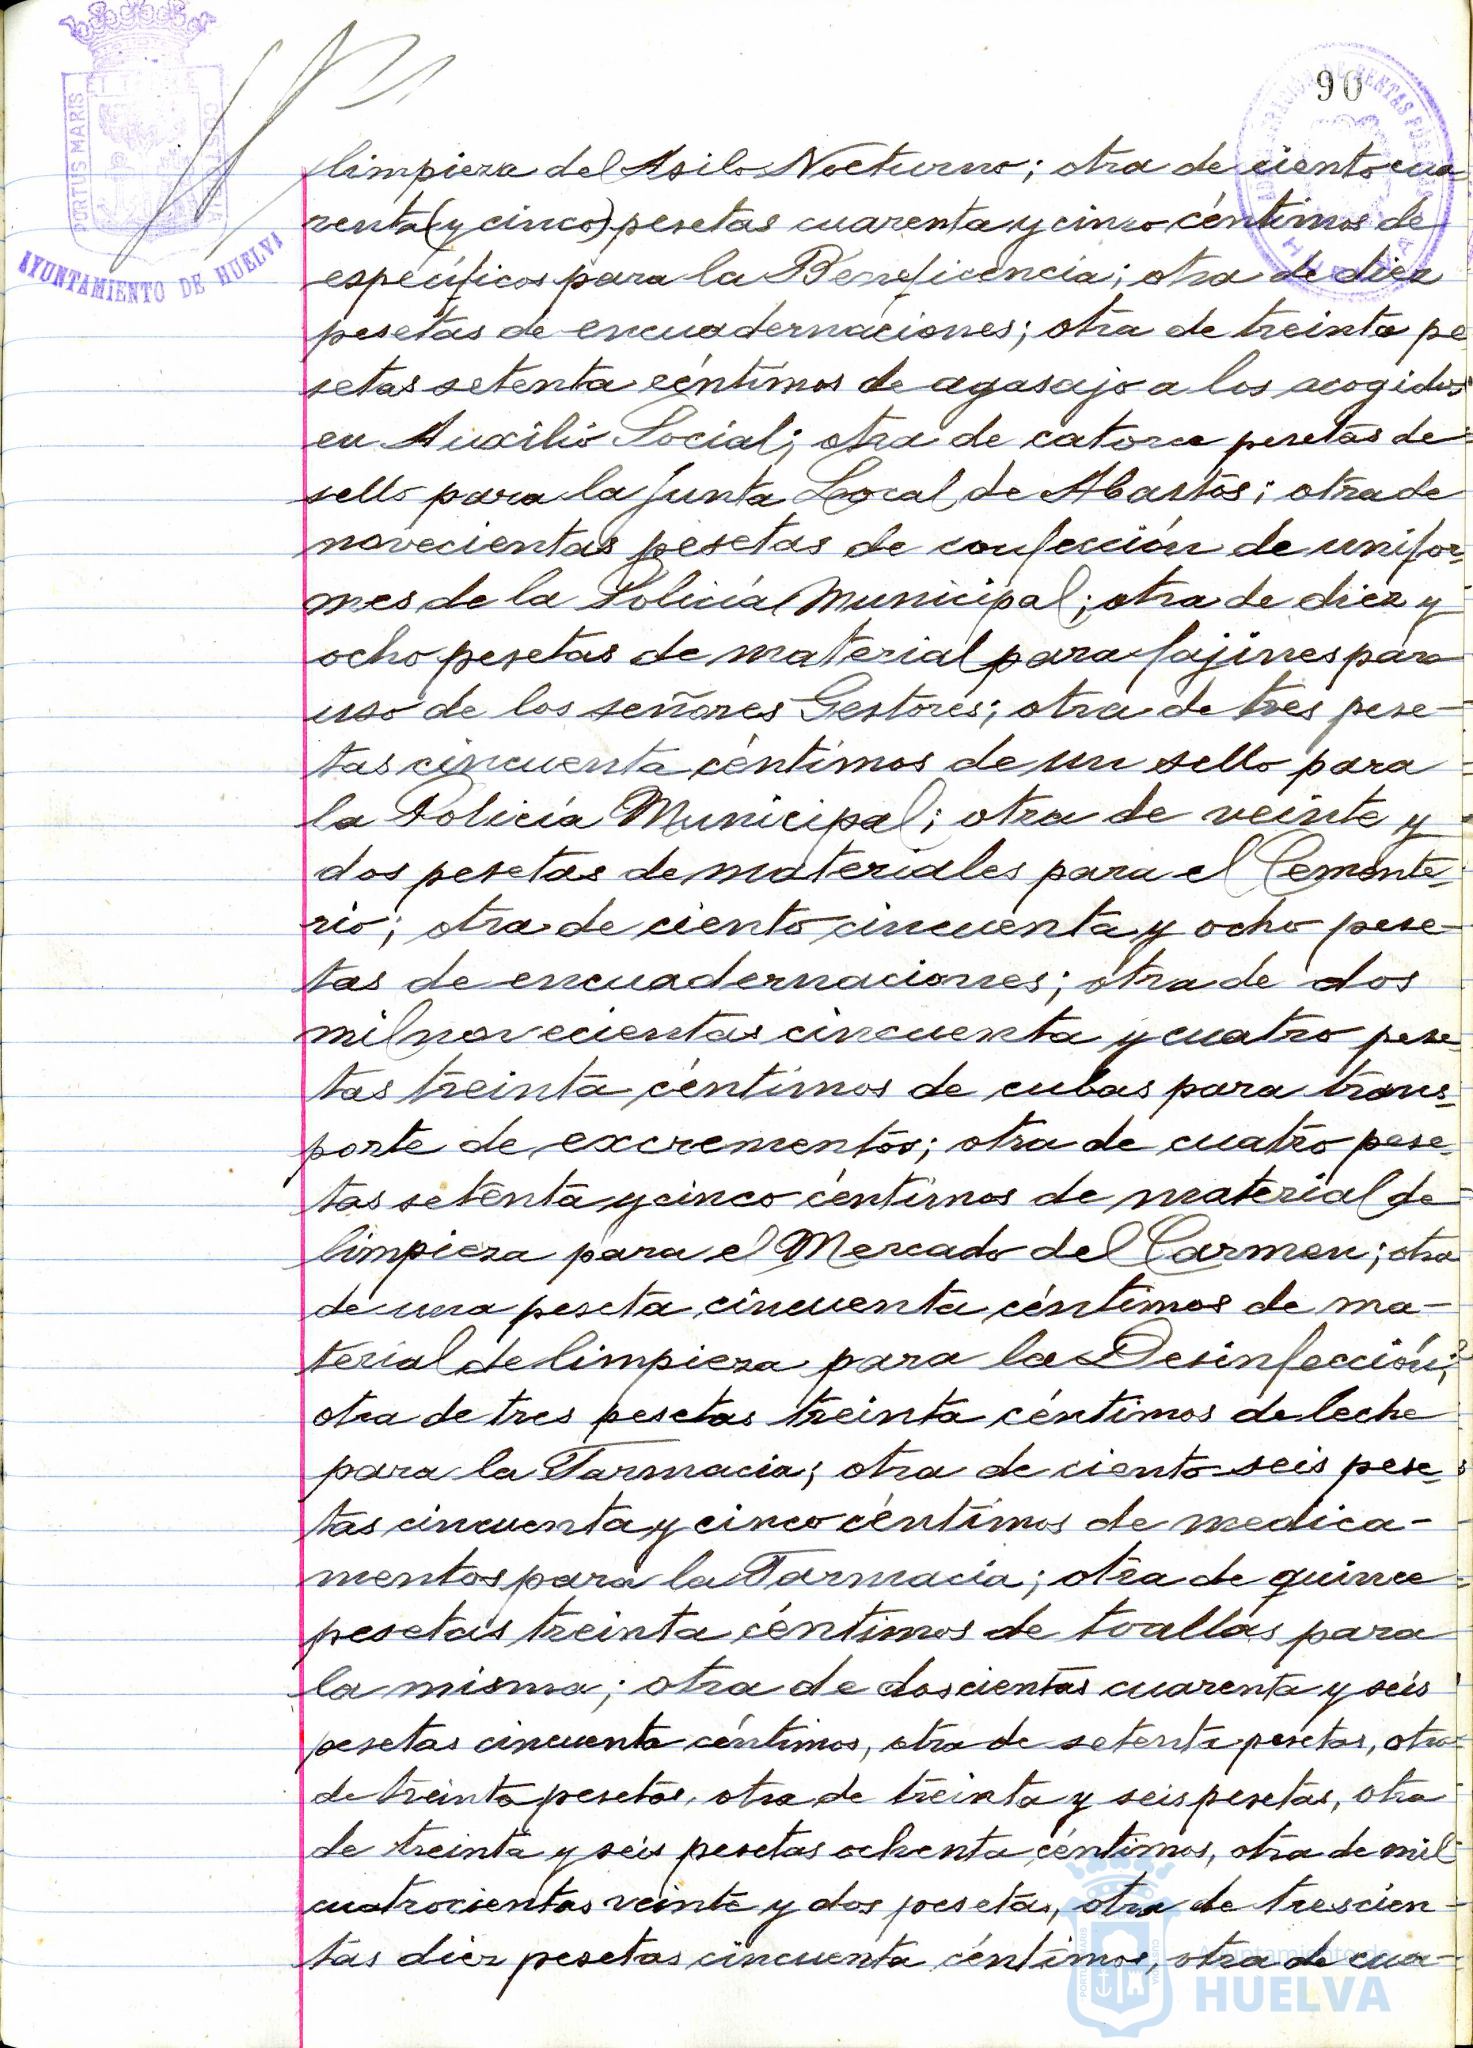 90
PORTUS MARIS
CUSTODIA
AYUNTAMIENTO DE HUELVA
limpieza del Asilo Nocturno; otra de ciento cua
renta (y cinco) pesetas cuarenta y cinco céntimos de
específicos para la Beneficencia; otra de diez
pesetas de encuadernaciones; otra de treinta pe
setas setenta céntimos de agasajo a los acogidos
en Auxilio Social; otra de catorce pesetas de
sello para la Junta Local de Abastos; otra de
novecientas pesetas de confección de unifor-
mes de la Policía Municipal; otra de diez y
ocho pesetas de material para fajines para
uso de los señores Gestores; otra de tres pese-
tas cincuenta céntimos de un sello para
la Policía Municipal; otra de veinte y
dos pesetas de materiales para el Cemente-
rio; otra de ciento cincuenta y ocho pese-
tas de encuadernaciones; otra de dos
mil novecientas cincuenta y cuatro pese-
tas treinta céntimos de cubas para trans-
porte de excrementos; otra de cuatro pese-
tas setenta y cinco céntimos de material de
limpieza para el Mercado del Carmen; otra
de una peseta cincuenta céntimos de ma-
terial de limpieza para la Desinfección;
otra de tres pesetas treinta céntimos de leche
para la Farmacia; otra de ciento seis pese-
tas cincuenta y cinco céntimos de medica-
mentos para la Farmacia; otra de quince
pesetas treinta céntimos de toallas para
la misma; otra de doscientas cuarenta y seis
pesetas cincuenta céntimos, otra de setenta pesetas, otra
de treinta pesetas, otra de treinta y seis pesetas, otra
de treinta y seis pesetas ochenta céntimos, otra de mil
cuatrocientas veinte y dos pesetas, otra de trescien-
tas diez pesetas cincuenta céntimos, otra de cua-
Ayuntamiento de
HUELVA